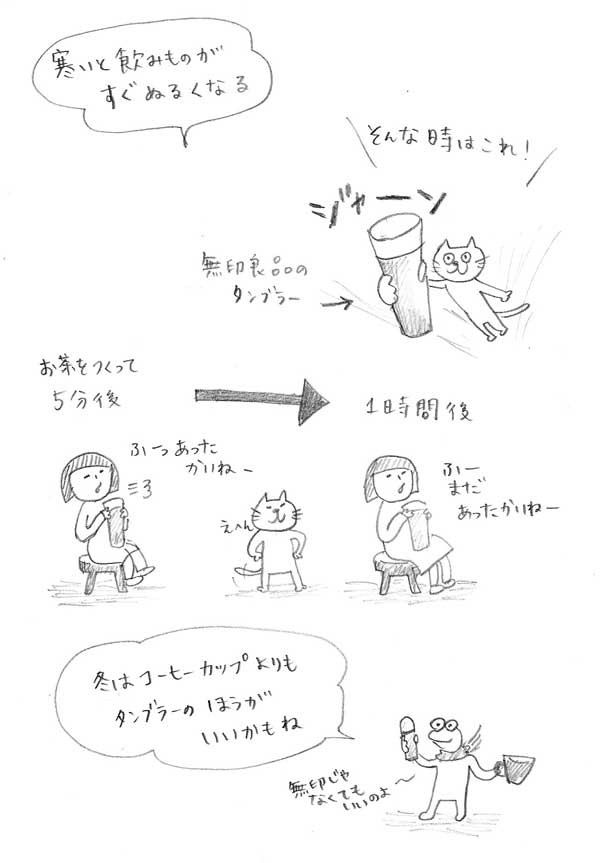 寒いと飲みものが
すぐぬるくなる
そんな時はこれ!
ジャーン
無印良品の
タンブラー
お茶をつくって
5分後
1時間後
ふーっあった
かいねー
えへん
ふー
まだ
あったかいねー
冬はコーヒーカップよりも
タンブラーのほうが
いいかもね
無印じゃ
なくても
いいのよ〜